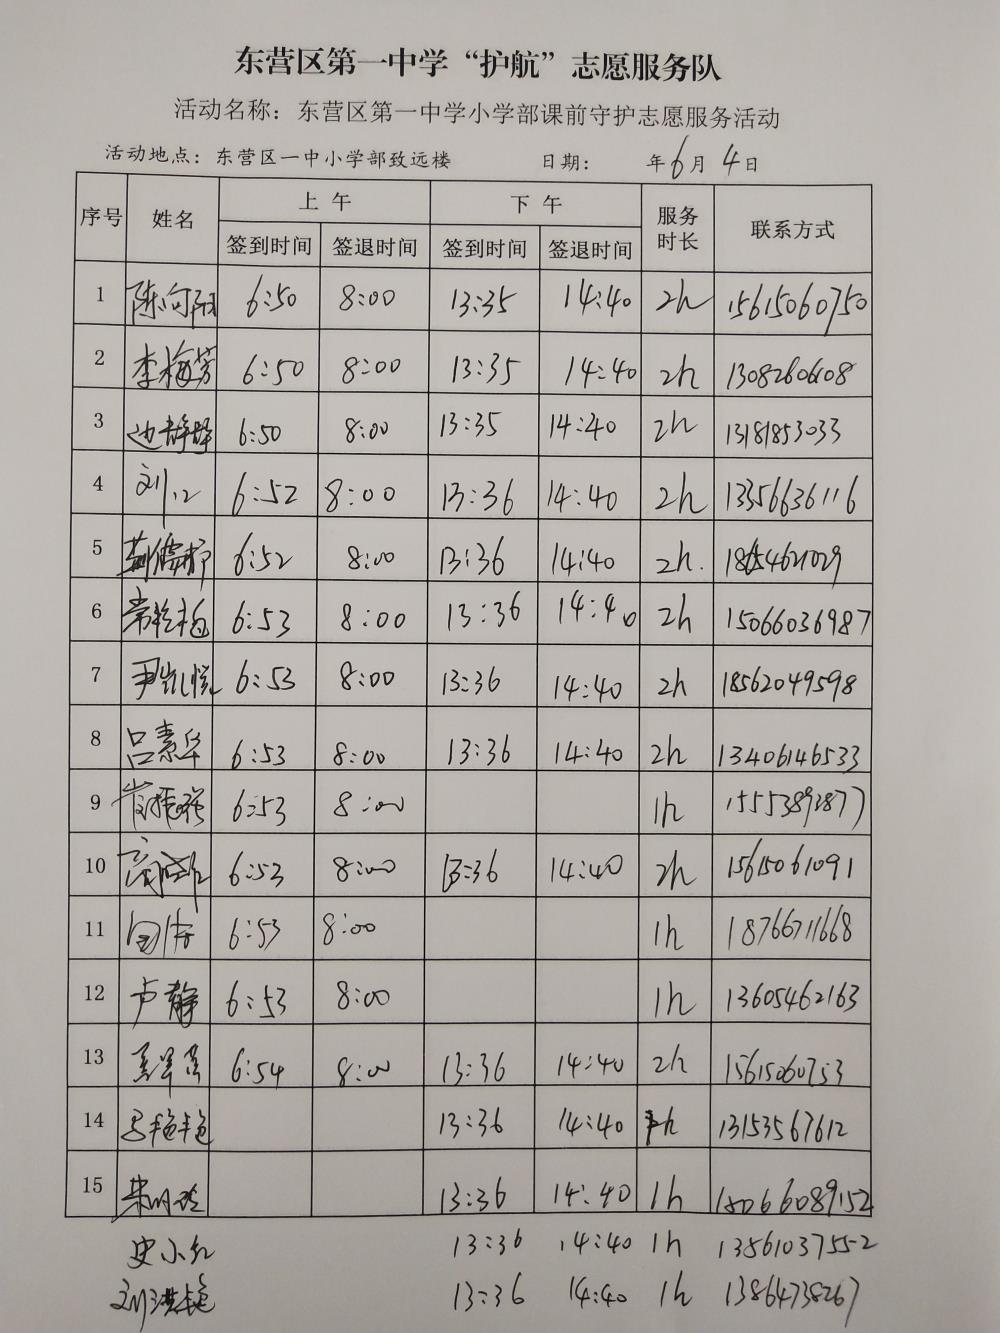 东营区第一中学“护航”志愿服务队
活动名称：东营区第一中学小学部课前守护志愿服务活动
活动地点：东营区一中小学部致远楼 日期： 年6月4日
序号 姓名 上午 下午 服务时长 联系方式
签到时间 签退时间 签到时间 签退时间
1 陈向阳 6:50 8:00 13:35 14:40 2h 15615060750
2 李梅芳 6:50 8:00 13:35 14:40 2h 13082606108
3 边静静 6:50 8:00 13:35 14:40 2h 13181853033
4 刘江 6:52 8:00 13:36 14:40 2h 13356636116
5 6:52 8:00 13:36 14:40 2h. 18654621029
6 常艳梅 6:53 8:00 13:36 14:40 2h 15066036987
7 尹凯悦 6:53 8:00 13:36 14:40 2h 18562049598
8 吕素华 6:53 8:00 13:36 14:40 2h 13406146533
9 6:53 8:00 1h 15553892877
10 6:53 8:00 13:36 14:40 2h 15615061091
11 6:53 8:00 1h 18766711668
12 卢静 6:53 8:00 1h 13605462163
13 6:54 8:00 13:36 14:40 2h 15615060753
14 马艳艳 13:36 14:40 1h 13153567612
15 朱明玲 13:36 14:40 1h 15066089152
史小红 13:36 14:40 1h 13561037552
刘洪艳 13:36 14:40 1h 13864738267